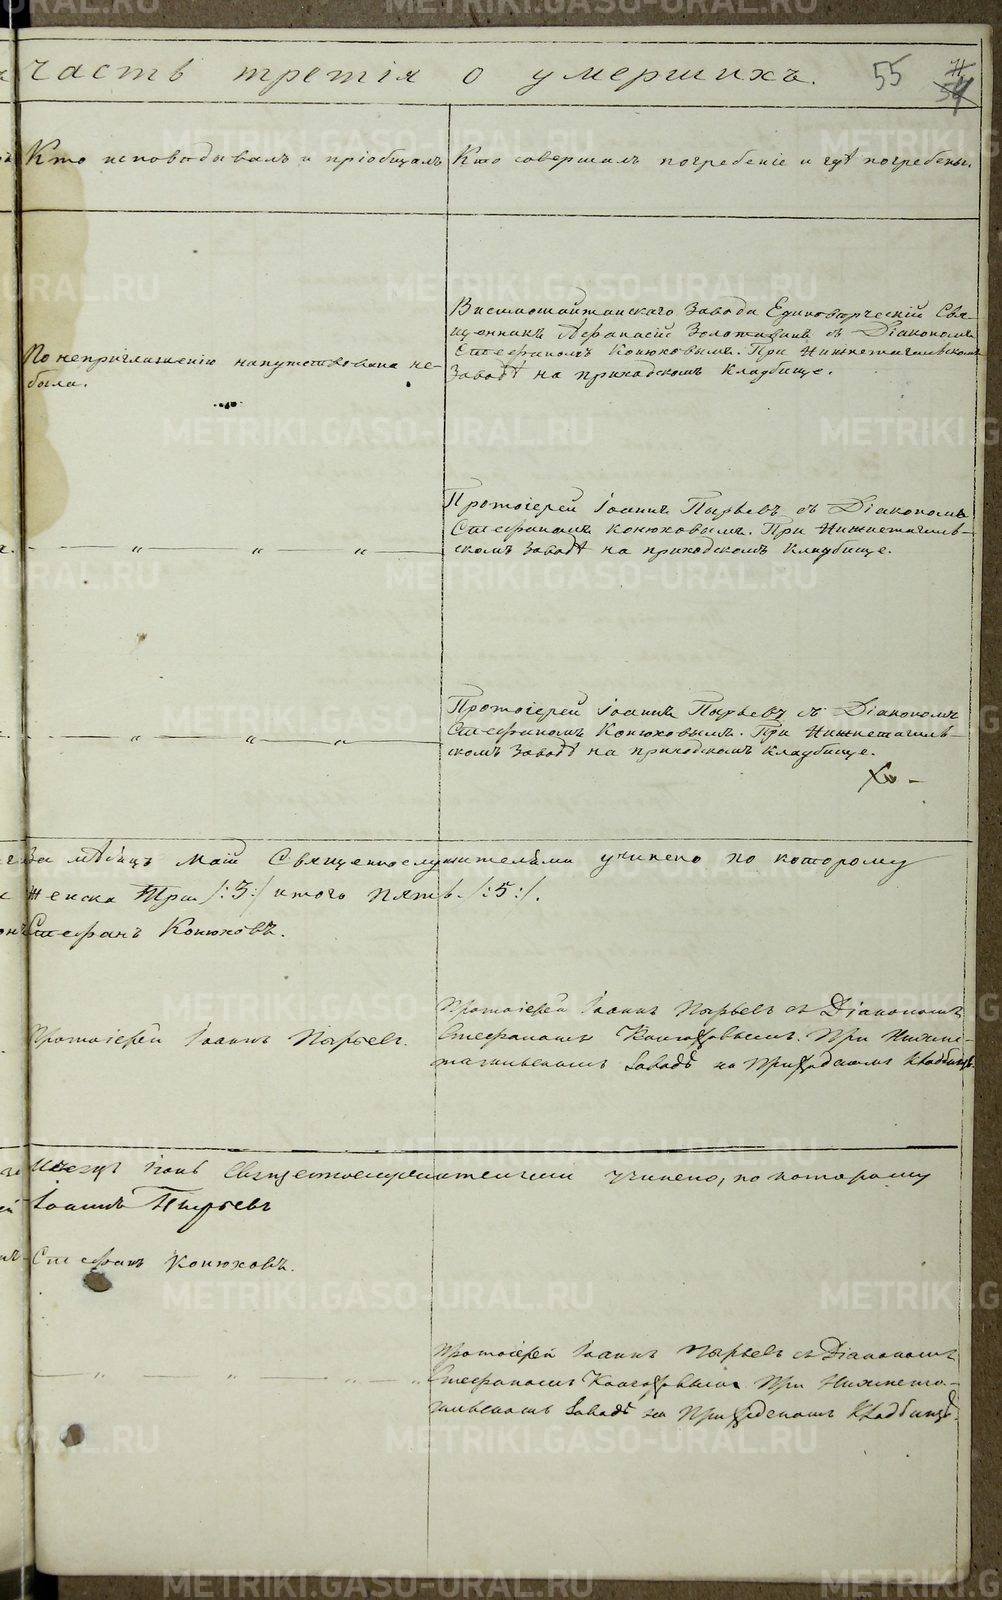 часть третія о умершихъ. 55
Кто исповѣдывалъ и пріобщалъ
Кто совершалъ погребеніе и гдѣ погребены.
Висимошайтанскаго Завода Единовѣрческій Свя-
щенникъ Аѳанасій съ Діакономъ
Стефаномъ Конюховымъ. При Нижнетагильскомъ
Заводѣ на приходскомъ кладбище.
По неприглашенію напутствована не-
была.
Протоіерей Іоаннъ Пырьевъ съ Діакономъ
Стефаномъ Конюховымъ. При Нижнетагиль-
скомъ Заводѣ на приходскомъ кладбище.
— " — " — " —
Протоіерей Іоаннъ Пырьевъ съ Діакономъ
Стефаномъ Конюховымъ. При Нижнетагиль-
скомъ Заводѣ на приходскомъ кладбище.
— " — " — " —
За мѣсяцъ Маій Священнослужителями учинено по которому
женска Три /:3:/ итого пять /:5:/.
Стефанъ Конюховъ.
Протоіерей Іоаннъ Пырьевъ съ Діакономъ
Стефаномъ Конюховымъ. При Нижне-
тагильскомъ Заводѣ на Приходскомъ Кладбищѣ.
Протоіерей Іоаннъ Пырьевъ.
Мѣсяцъ Іюнь Священнослужителями учинено, по которому
Іоаннъ Пырьевъ
Стефанъ Конюховъ.
Протоіерей Іоаннъ Пырьевъ съ Діакономъ
Стефаномъ Конюховымъ При Нижнета-
гильскомъ Заводѣ на Приходскомъ Кладбищѣ.
— " — " — "
METRIKI.GASO-URAL.RU